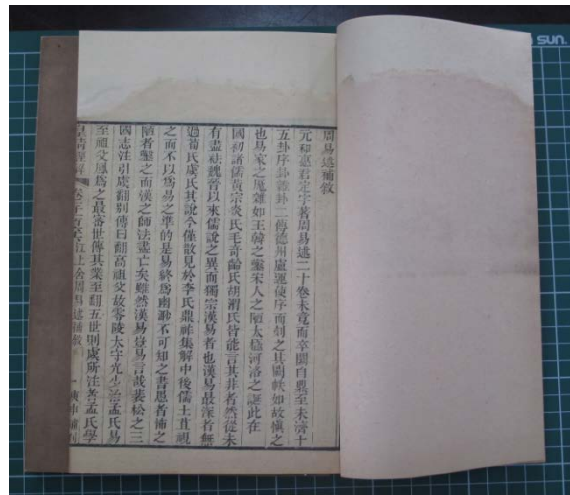 周易述補敘
元和惠君定宇著周易述二十卷未竟而卒闕自鼎至未濟十
五卦序卦雜卦二傳德州盧運使序而刻之其闕帙如故愼之
也易家之厖雜如王韓之鑿宋人之陋太極河洛之誕此在
國初諸儒黃宗炎氏毛奇齡氏胡渭氏皆能言其非者然從未
有盡祛魏晉以來儒說之異而獨宗漢易者也漢易最深者無
過荀氏虞氏其說今僅散見於李氏鼎祚集解中後儒土苴視
之而不以為易之準的是易終為幽渺不可知之書愚者沛之
陋者鑿之而漢之師法盡亡矣雖然漢易豈易言哉裴松之三
國志注引虞翻別傳曰翻高祖父故零陵太守光少治孟氏易
至祖父鳳為之最密世傳其業至翻五世則虞所注者孟氏學
皇清經解 卷三百 周易述補敘 一 庚申補刊
sun.